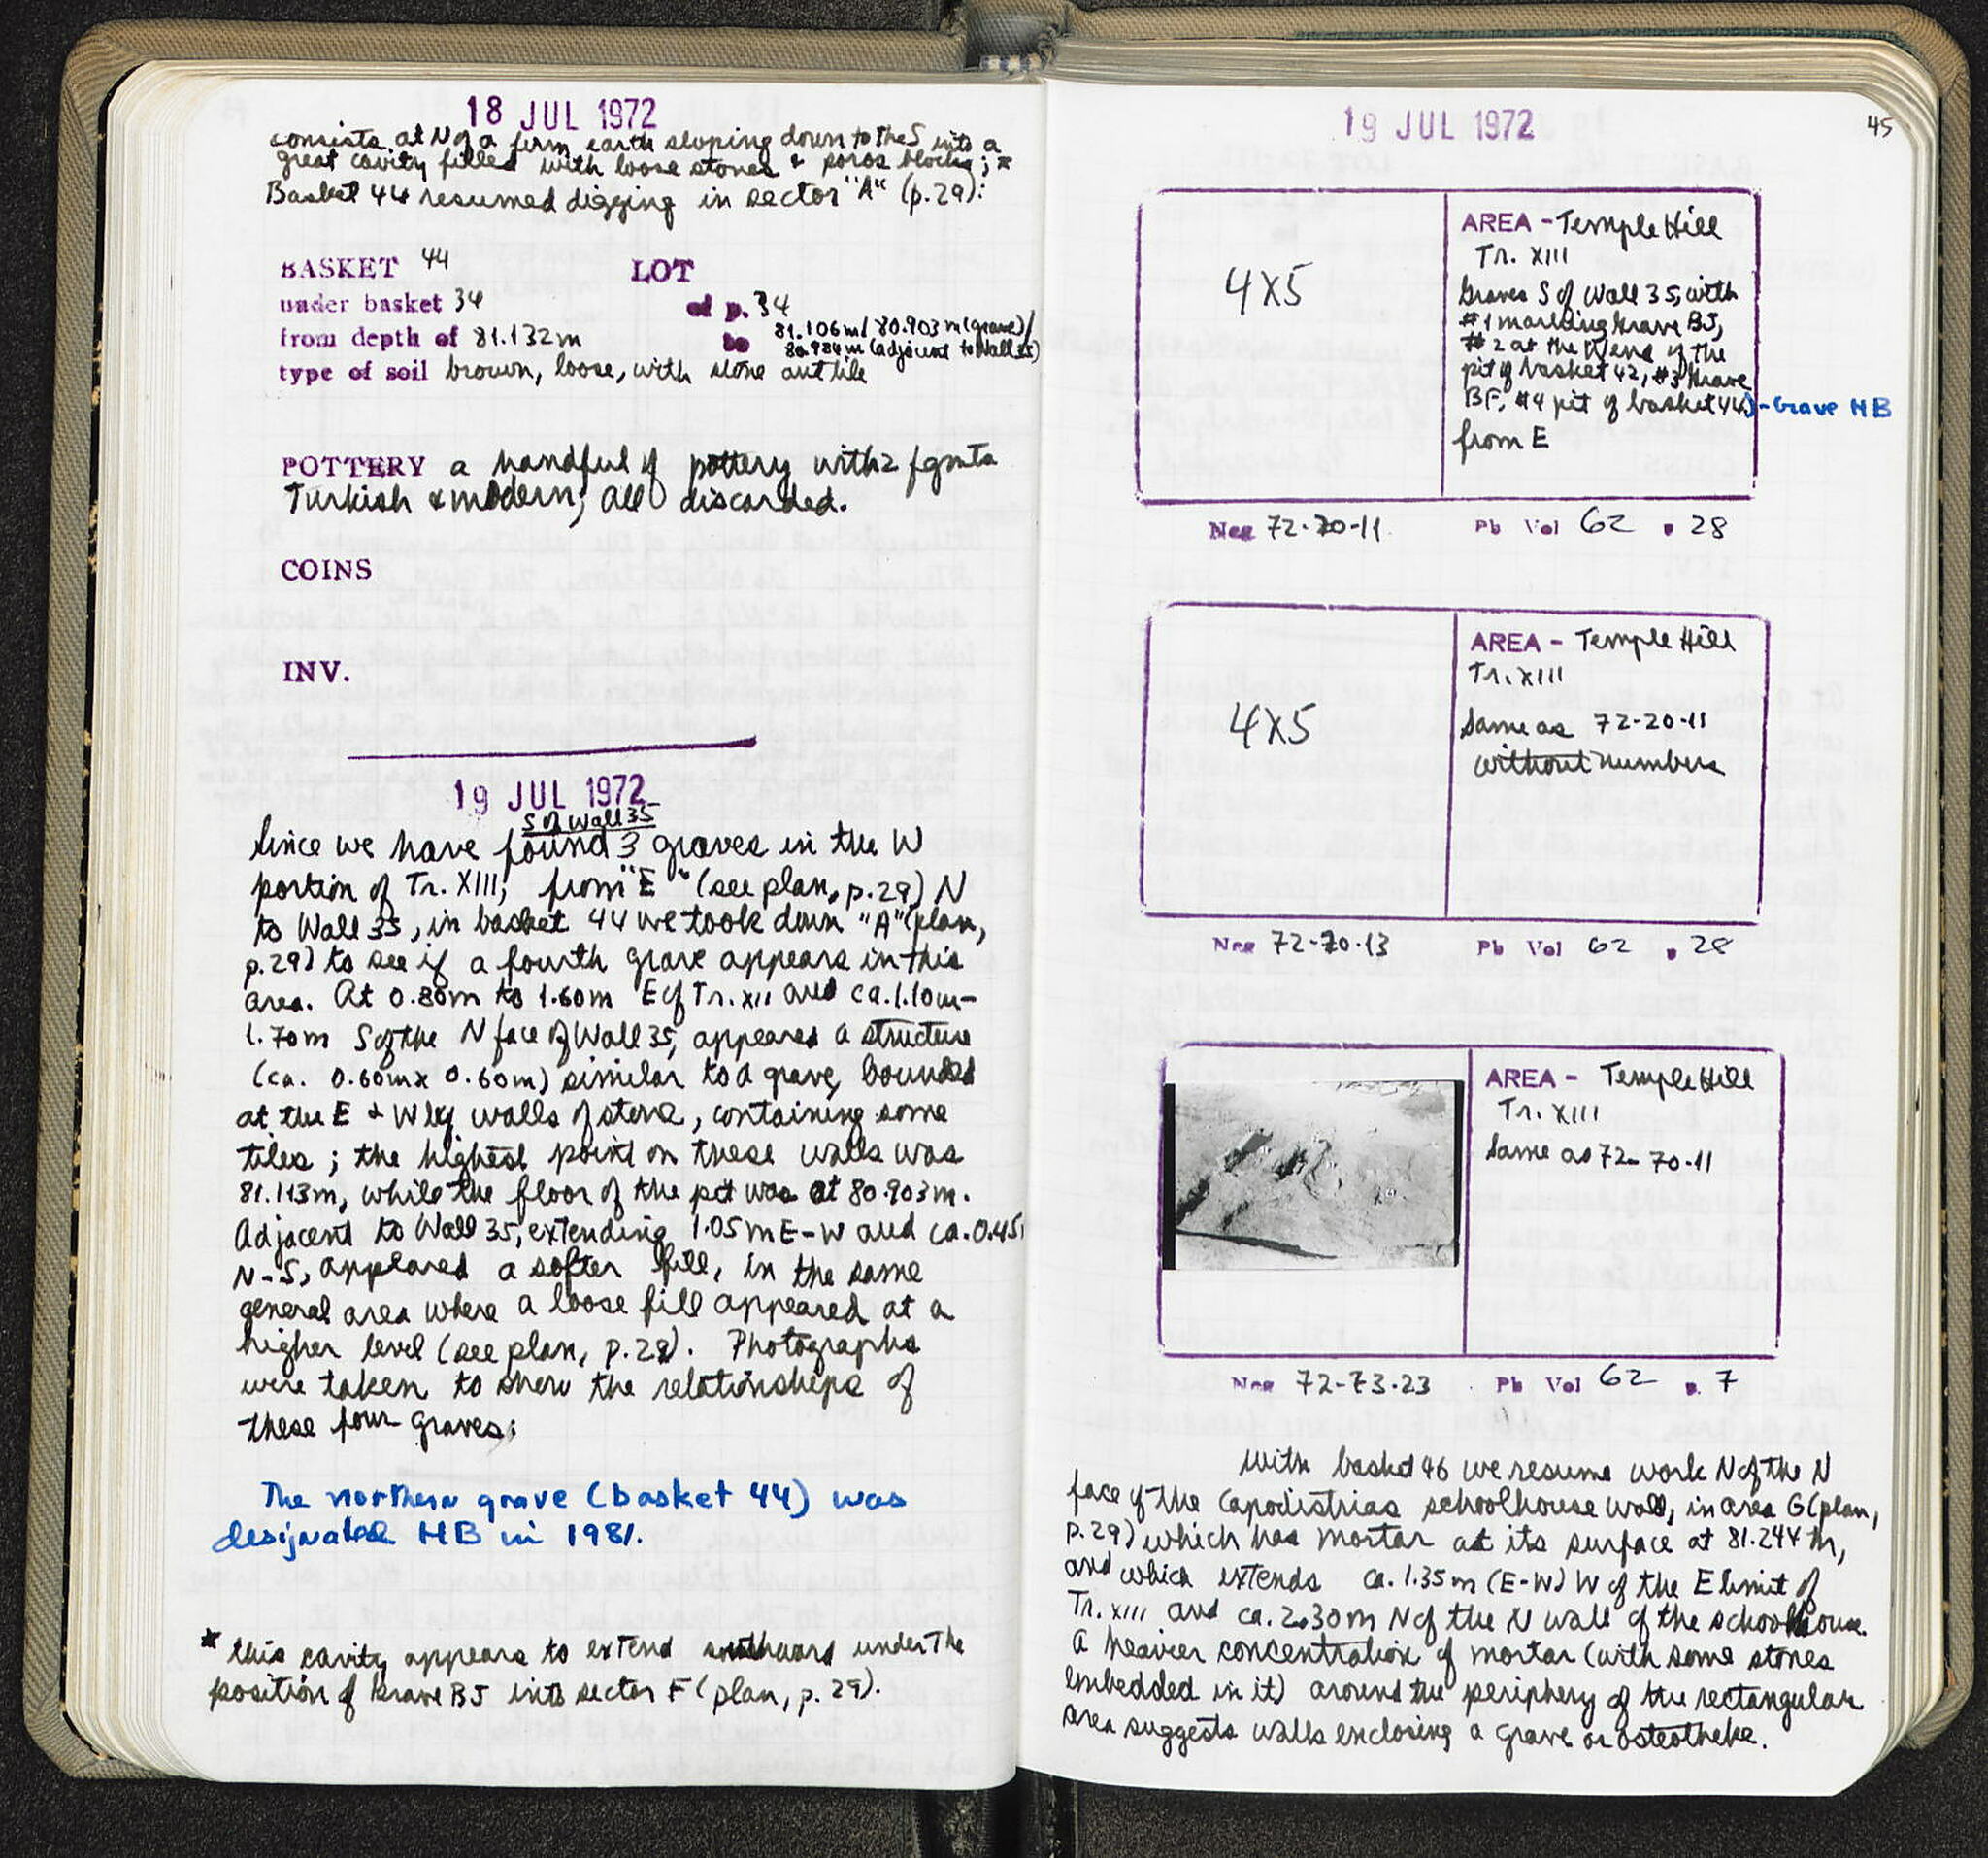 18 JUL 1972
consists at N of a firm earth sloping down to the S into a
great cavity filled with loose stones & poros blocks; *
Basket 44 resumed digging in sector "A" (p.29):
BASKET 44 LOT
under basket 34 of p. 34
from depth of 81.132m to 81.106m/80.903m (grave)/
80.984m (adjacent to Wall 35)
type of soil brown, loose, with stone and tile
POTTERY a handful of pottery with 2 fgmts
Turkish & modern; all discarded.
COINS
INV.
19 JUL 1972
S of Wall 35
Since we have found 3 graves in the W
portion of Tr. XIII, from "E" (see plan, p.29) N
to Wall 35, in basket 44 we took down "A" (plan,
p.29) to see if a fourth grave appears in this
area. At 0.80m to 1.60m E of Tr. XII and ca. 1.10m-
1.70m S of the N face of Wall 35, appeared a structure
(ca. 0.60m x 0.60m) similar to a grave, bounded
at the E & W by walls of stone, containing some
tiles; the highest point on these walls was
81.113m, while the floor of the pit was at 80.903m.
Adjacent to Wall 35, extending 1.05m E-W and ca. 0.45
N-S, appeared a softer fill, in the same
general area where a loose fill appeared at a
higher level (see plan, p.29). Photographs
were taken to show the relationships of
these four graves:
The northern grave (basket 44) was
designated HB in 1981.
* this cavity appears to extend southward under the
position of Grave BJ into sector F (plan, p. 29).
19 JUL 1972
45
4X5
AREA - Temple Hill
Tr. XIII
Graves S of Wall 35, with
#1 marking Grave BJ,
#2 at the W end of the
pit of basket 42, #3 Grave
BF, #4 pit of basket 44,) - Grave HB
from E
Neg 72-70-11 Pb Vol 62 p. 28
4X5
AREA - Temple Hill
Tr. XIII
Same as 72-20-11
without numbers
Neg 72-70-13 Pb Vol 62 p. 28
AREA - Temple Hill
Tr. XIII
Same as 72-70-11
Neg 72-73-23 Pb Vol 62 p. 7
With basket 46 we resume work N of the N
face of the Capodistrias schoolhouse wall, in area G (plan,
p.29) which has mortar at its surface at 81.244m,
and which extends ca. 1.35m (E-W) W of the E limit of
Tr. XIII and ca. 2.30m N of the N wall of the schoolhouse.
A heavier concentration of mortar (with some stones
embedded in it) around the periphery of the rectangular
area suggests walls enclosing a grave or osteotheke.